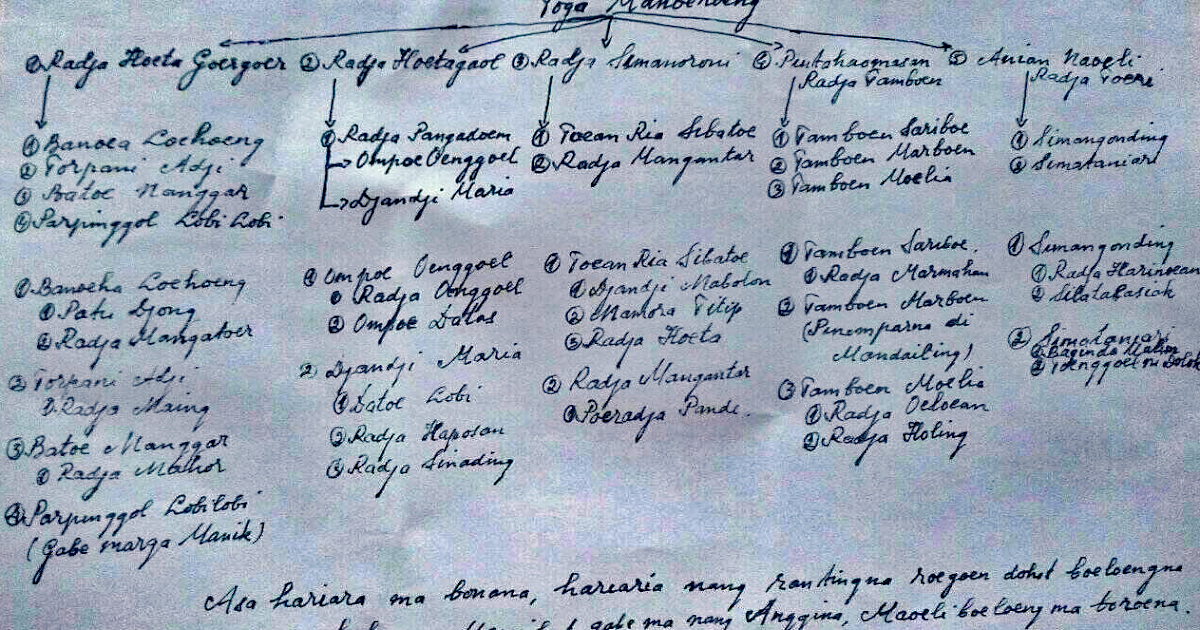 Toga Manoeroeng
① Radja Hoeta Goergoer ② Radja Hoetagaol ③ Radja Simanoroni ④ Pentahaomasan ⑤ Anian Naoeli
Radja Tamboen
Radja Toeri
① Banoea Loehoeng
② Torpani Adji
③ Batoe Nanggar
④ Parpinggol Lobi Lobi
① Radja Pangadoem
Ompoe Oenggoel
Djandji Maria
① Toean Ria Sibatoe
② Radja Mangantar
① Tamboen Sariboe
② Tamboen Marboen
③ Tamboen Moelia
① Simangonding
② Simataniari
① Banoeha Loehoeng
① Patu Djong
② Radja Mangatoer
② Torpani Adji
① Radja Maing
③ Batoe Nanggar
① Radja Mahor
④ Parpinggol Lobilobi
(Gabe marga Manik)
① Ompoe Oenggoel
① Radja Onggoel
② Ompoe Datas
② Djandji Maria
① Datoe Lobi
② Radja Haposan
③ Radja Sinading
① Toean Ria Sibatoe
① Djandji Mabolon
② Mamora Titip
③ Radja Hoeta
② Radja Mangantar
① Poeradja Pande.
① Tamboen Sariboe.
① Radja Marmahan
② Tamboen Marboen
(Pinomparna di
Mandailing)
③ Tamboen Moelia
① Radja Oeloean
② Radja Holing
① Simangonding
① Radja Harinoean
② Silatabasiak
② Simataniari
① Baginda Malim
② Toenggoel ni Dolok
Asa hariara ma bonana, hariaria nang rantingna roegoen dohot boeloengna
gabe ma nang Anggina, Maoeli boeloeng ma boroena.